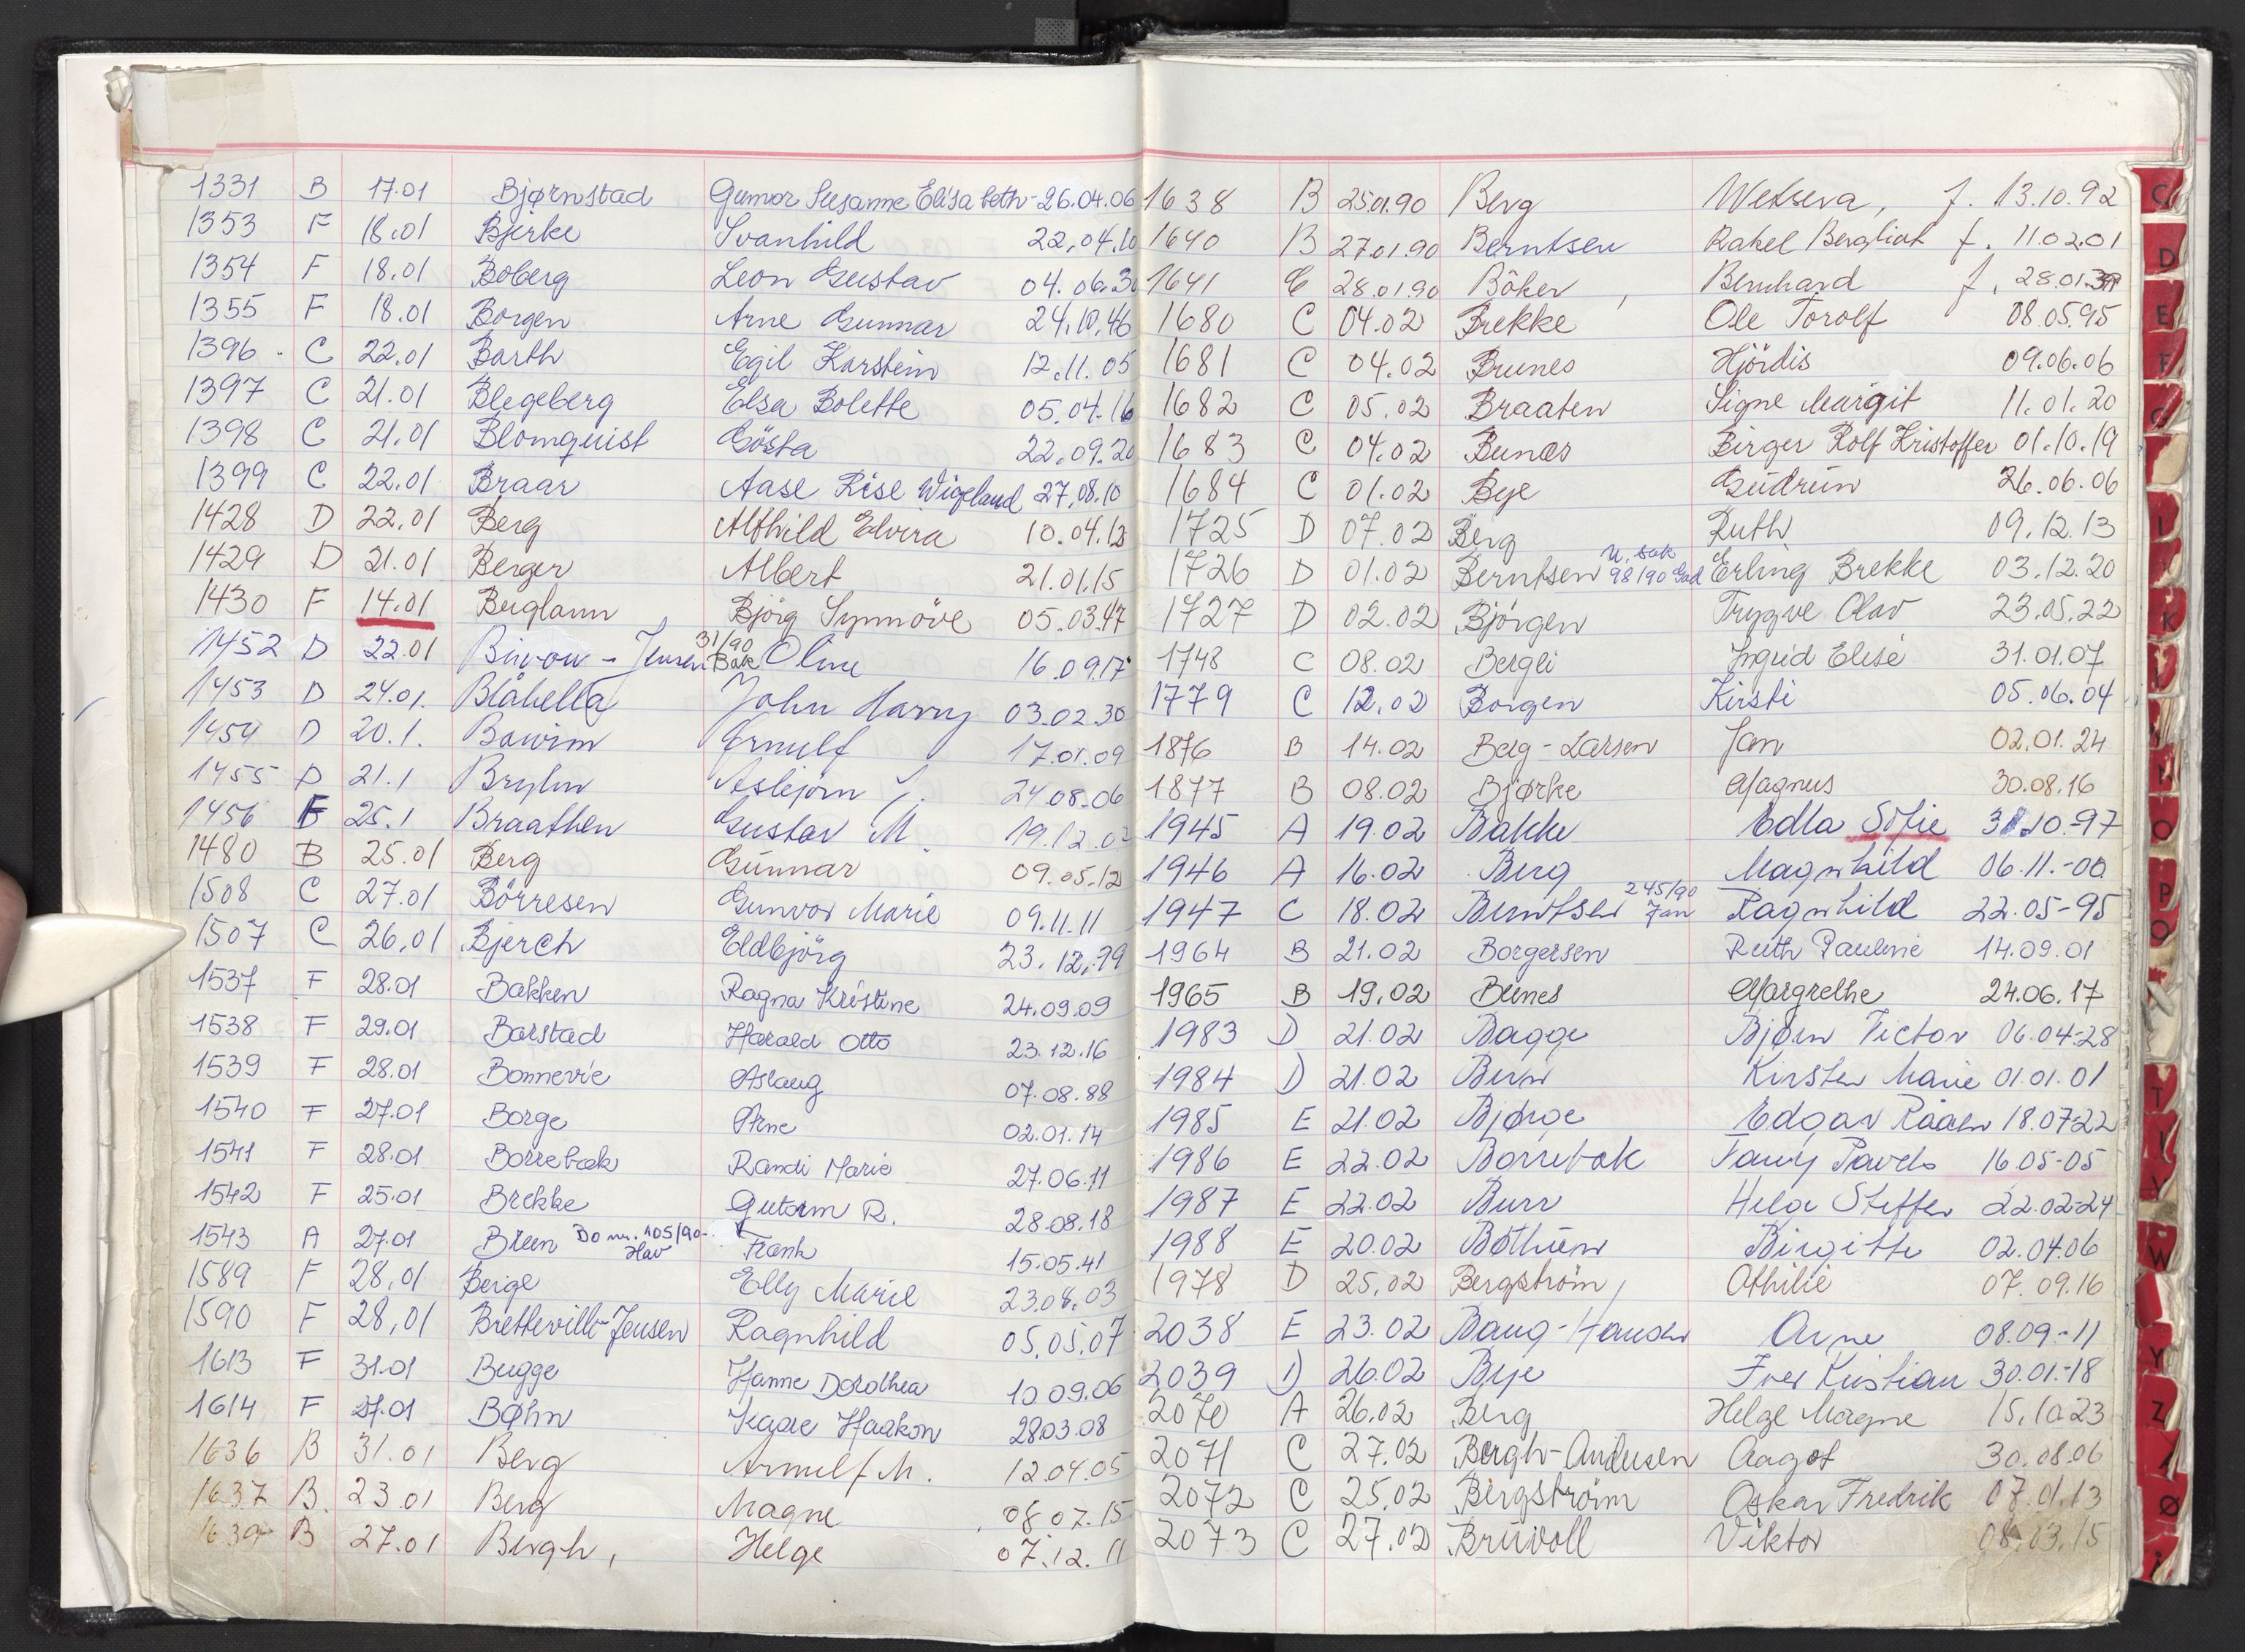 1331 B 17.01 Bjørnstad Gunvor Susanne Elisabeth - 26.04.06
1353 F 18.01 Bjerke Svanhild 22.04.10
1354 F 18.01 Boberg Leon Gustav 04.06.30
1355 F 18.01 Borgen Arne Gunnar 24.10.46
1396 C 22.01 Barth Egil Karstein 12.11.05
1397 C 21.01 Blegeberg Elsa Bolette 05.04.16
1398 C 21.01 Blomquist Gösta 22.09.20
1399 C 22.01 Braar Aase Rise Wigeland 27.08.10
1428 D 22.01 Berg Alfhild Elvira 10.04.12
1429 D 21.01 Berger Albert 21.01.15
1430 F 14.01 Berglann Bjørg Synnöve 05.03.47
1452 D 22.01 - Jensen 31/90 Bak Oline 16.09.17
1453 D 24.01. Blåbella John Harry 03.02.30
1454 D 20.1. Bawim Arnulf 17.01.09
1455 D 21.1 Bryhn Asbjørn J. 24.08.06
1456 F 25.1 Braathen Gustav M. 19.12.02
1480 B 25.01 Berg Gunnar 09.05.12
1508 C 27.01 Börresen Gunvor Marie 09.11.11
1507 C 26.01 Bjerch Eldbjörg 23.12.99
1537 F 28.01 Bakken Ragna Kristine 24.09.09
1538 F 29.01 Barstad Harald Otto 23.12.16
1539 F 28.01 Bonnevie Aslaug 07.08.88
1540 F 27.01 Borge Arne 02.01.14
1541 F 28.01 Borrebæk Randi Marie 27.06.11
1542 F 25.01 Brekke Gutorm R. 28.08.18
1543 A 27.01 Bruun Do nr. 105/90- Hav Frank 15.05.41
1589 F 28.01 Berge Elly Marie 23.08.03
1590 F 28.01 Bretteville-Jensen Ragnhild 05.05.07
1613 F 31.01 Bugge Hanne Dorothea 10.09.06
1614 F 27.01 Bøhn Kaare Haakon 28.03.08
1636 B 31.01 Berg Arnulf M. 12.04.05
1637 B. 23.01 Berg Magne 08.07.15
1639 B 27.01 Bergh, Helge 07.12.11
1638 B 25.01.90 Berg f. 13.10.92
1640 B 27.01.90 Berntsen Rakel Bergliot f. 11.02.01
1641 C 28.01.90 Böker, Bernhard f. 28.01.
1680 C 04.02 Brekke Ole Torolf 08.05.95
1681 C 04.02 Brunes Hjördis 09.06.06
1682 C 05.02 Braaten Signe Margit 11.01.20
1683 C 04.02 Bunæs Birger Rolf Kristoffer 01.10.19
1684 C 01.02 Bye Gudrun 26.06.06
1725 D 07.02 Berg Ruth 09.12.13
1726 D 01.02 Berntsen U. bak 98/90 Gad Erling Brekke 03.12.20
1727 D 02.02 Bjørgen Trygve Olav 23.05.22
1748 C 08.02 Bergli Ingrid Elise 31.01.07
1779 C 12.02 Borgen Kirsti 05.06.04
1876 B 14.02 Berg-Larsen Jan 02.01.24
1877 B 08.02 Bjørke Magnus 30.08.16
1945 A 19.02 Bakke Edla Sofie 31.10.-97
1946 A 16.02 Berg Magnhild 06.11.-00
1947 C 18.02 Berntsen 245/90 Jan Ragnhild 22.05-95
1964 B 21.02 Borgersen Ruth Pauline 14.09.01
1965 B 19.02 Bunes Margrethe 24.06.17
1983 D 21.02 Bagge Bjørn Victor 06.04-28
1984 D 21.02 Kirsten Marie 01.01.01
1985 E 21.02 Bjørge Edgar Råaen 18.07-22
1986 E 22.02 Borrebæk Fanny 16.05-05
1987 E 22.02 Burr Steffen 22.02-24
1988 E 20.02 Bothun Birgitte 02.04.06
1978 D 25.02 Bergström, Othilie 07.09.16
2038 E 23.02 Baug-Hansen Arne 08.09.-11
2039 D 26.02 Bye Iver Kristian 30.01-18
2070 A 26.02 Berg Helge Magne 15.10.23
2071 C 27.02 Bergh-Andersen Aagot 30.08.06
2072 C 25.02 Bergström Oskar Fredrik 07.01.13
2073 C 27.02 Bruvoll Viktor 08.03.15
C
D
E
F
G
I
K
N
O
P
Q
T
V
W
Y
Z
Ø